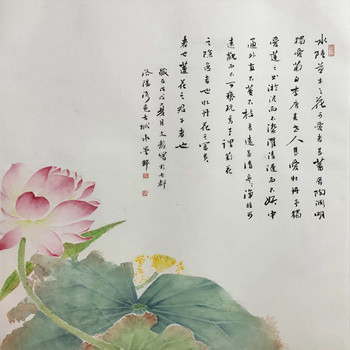 水陸草木之花可愛者甚蕃晉陶淵明
獨愛菊自李唐來世人甚愛牡丹予獨
愛蓮之出淤泥而不染濯清漣而不妖中
通外直不蔓不枝香遠益清亭亭淨植可
遠觀而不可褻玩焉予謂菊花
之隱逸者也牡丹花之富貴
者也蓮花之君子者也
歲在戊戌夏月文寫於古都
洛陽